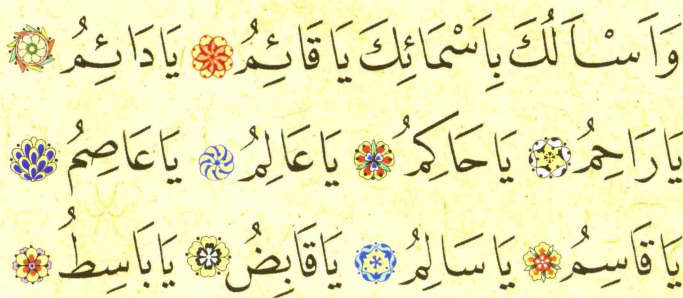 وَاَسْاَلُكَ بِاَسْمَائِكَ يَا قَائِمُ يَادَائِمُ
يَارَاحِمُ يَاحَاكِمُ يَاعَالِمُ يَاعَاصِمُ
يَاقَاسِمُ يَاسَالِمُ يَاقَابِضُ يَابَاسِطُ